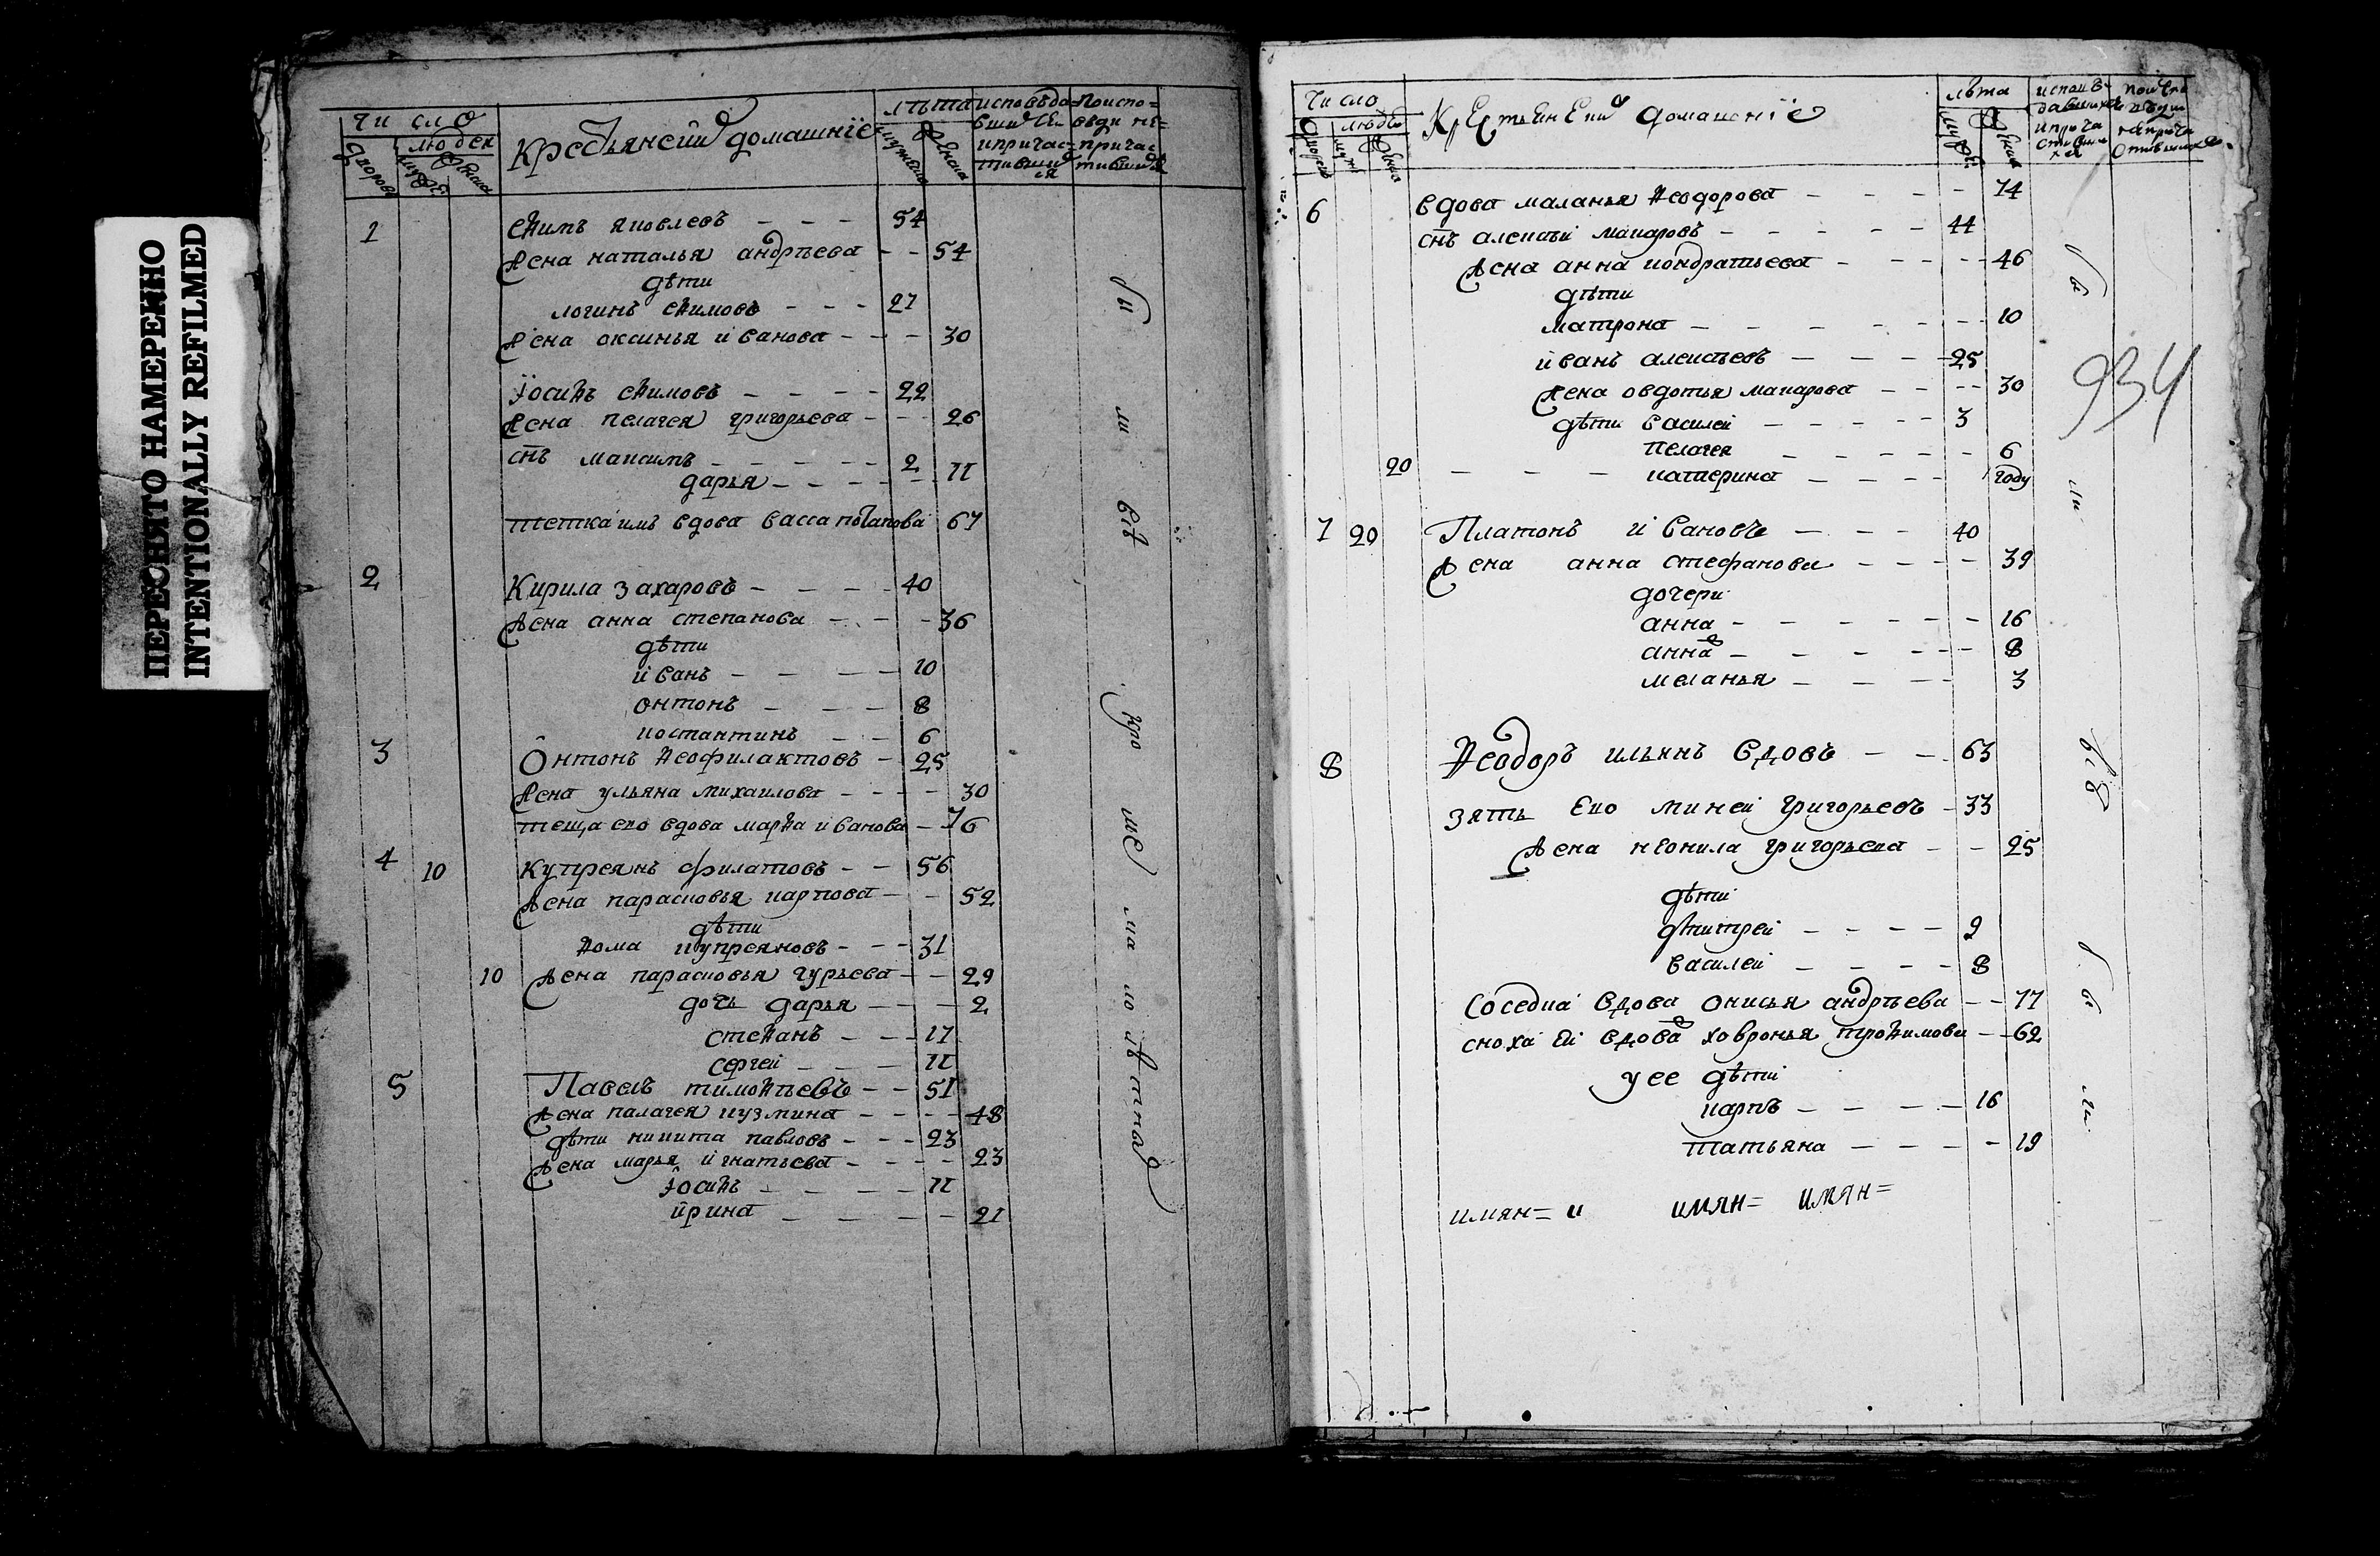 ПЕРЕСНЯТО НАМЕРЕННО
INTENTIONALLY REFILMED
Число
людей
дворовъ
мужеска
женска
домашнїе
лѣта
исповѣда-
вшихся
ипричас-
тившихся
поиспо-
веди не-
причас-
тившихся
1 еѳимъ яковлевъ - - - 54
жена наталья андрѣева - - 54
дѣти
логинъ еѳимовъ - - - 27
жена оксинья ивanова - - - 30
їосиѳъ еѳимовъ - - - - 22
жена пелагея григорьева - - - 26
снъ максимъ - - - - - 2
дарья - - - - - - 11
тетка имъ вдова васса потапова 67
2 Кирила захаровъ - - - - 40
жена анна степанова - - - - 36
дѣти
иванъ - - - - - 10
онтонъ - - - - 8
костантинъ - - 6
3 Онтонъ ѳеофилактовъ - 25
жена ульяна михаилова - - - - 30
теща ево вдова марѳа иванова - 76
4 10 Купреянъ филатовъ - - 56
жена парасковья карпова - - 52
дѣти
ѳома купреяновъ - - - 31
10 жена парасковья гурьева - - 29
дочь дарья - - - 2
стеѳанъ - - - 17
сергей - - - 11
5 Павелъ тимоѳѣевъ - - 51
жена палагея кузмина - - - - 48
дѣти никита павловъ - - - 23
жена марья игнатьева - - - - 23
їосиѳъ - - - - - 11
ирина - - - - - 21
Число
людей
домашнїе
лѣта
6 вдова маланья ѳеодорова - - - - - 74
снъ алексѣй макаровъ - - - - - 44
жена анна кондратьева - - - - - 46
дѣти
матрона - - - - - - - 10
иванъ алексѣевъ - - - - 25
жена овдотья макарова - - - - 30
дѣти василей - - - - - 3
пелагея - - - - - 6
20 - - - катерина - - - - 1 году
934
7 20 Платонъ ивановъ - - - 40
жена анна стефанова - - - - 39
дочери
анна - - - - - - 16
анна - - - - - - 8
меланья - - - - - 3
8 Ѳеодоръ ильинъ вдовъ - - - 63
зять ево миней григорьевъ - 33
жена неонила григорьева - - 25
дѣти
дмитрей - - - - 9
василей - - - - 8
соседка вдова онисья андрѣева - - 77
сноха ей вдова ховронья троѳимова - - 62
у ее дѣти
карпъ - - - - 16
татьяна - - - - 19
имян= и имян= имян=